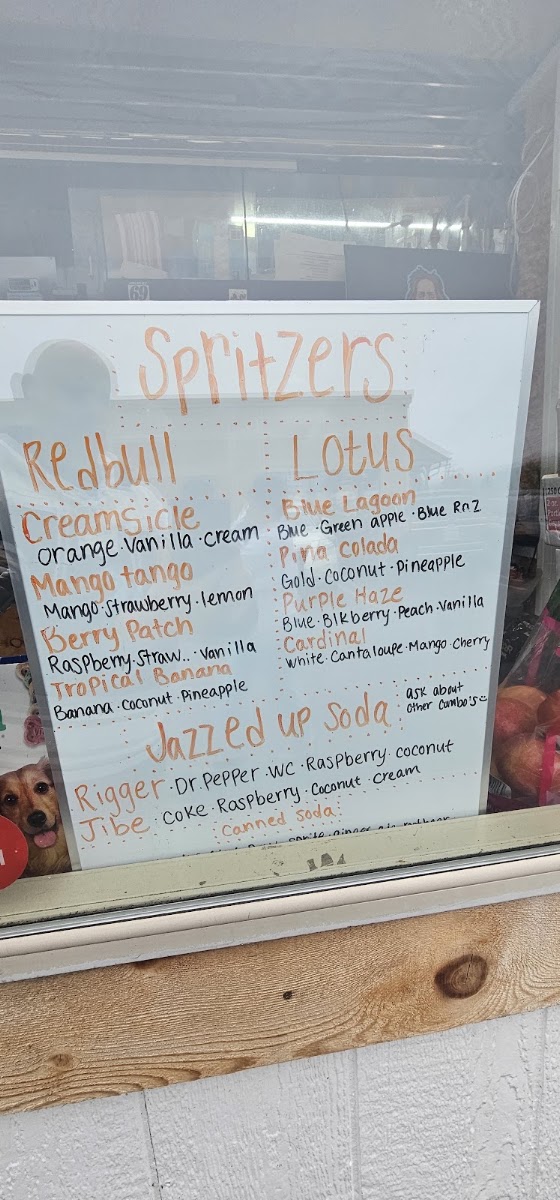 Spritzers
Redbull
Creamsicle
Orange · Vanilla · cream
Mango tango
Mango · Strawberry · lemon
Berry Patch
Raspberry · Straw.. · Vanilla
Tropical Banana
Banana · coconut · Pineapple
Lotus
Blue Lagoon
Blue · Green apple · Blue Raz
Pina Colada
Gold · coconut · Pineapple
Purple Haze
Blue · Blkberry · Peach · Vanilla
Cardinal
White · Cantaloupe · Mango · Cherry
Jazzed up Soda
ask about
other combo's
Rigger · Dr. Pepper · WC · Raspberry · coconut
Jibe · Coke · Raspberry · Coconut · Cream
Canned soda: